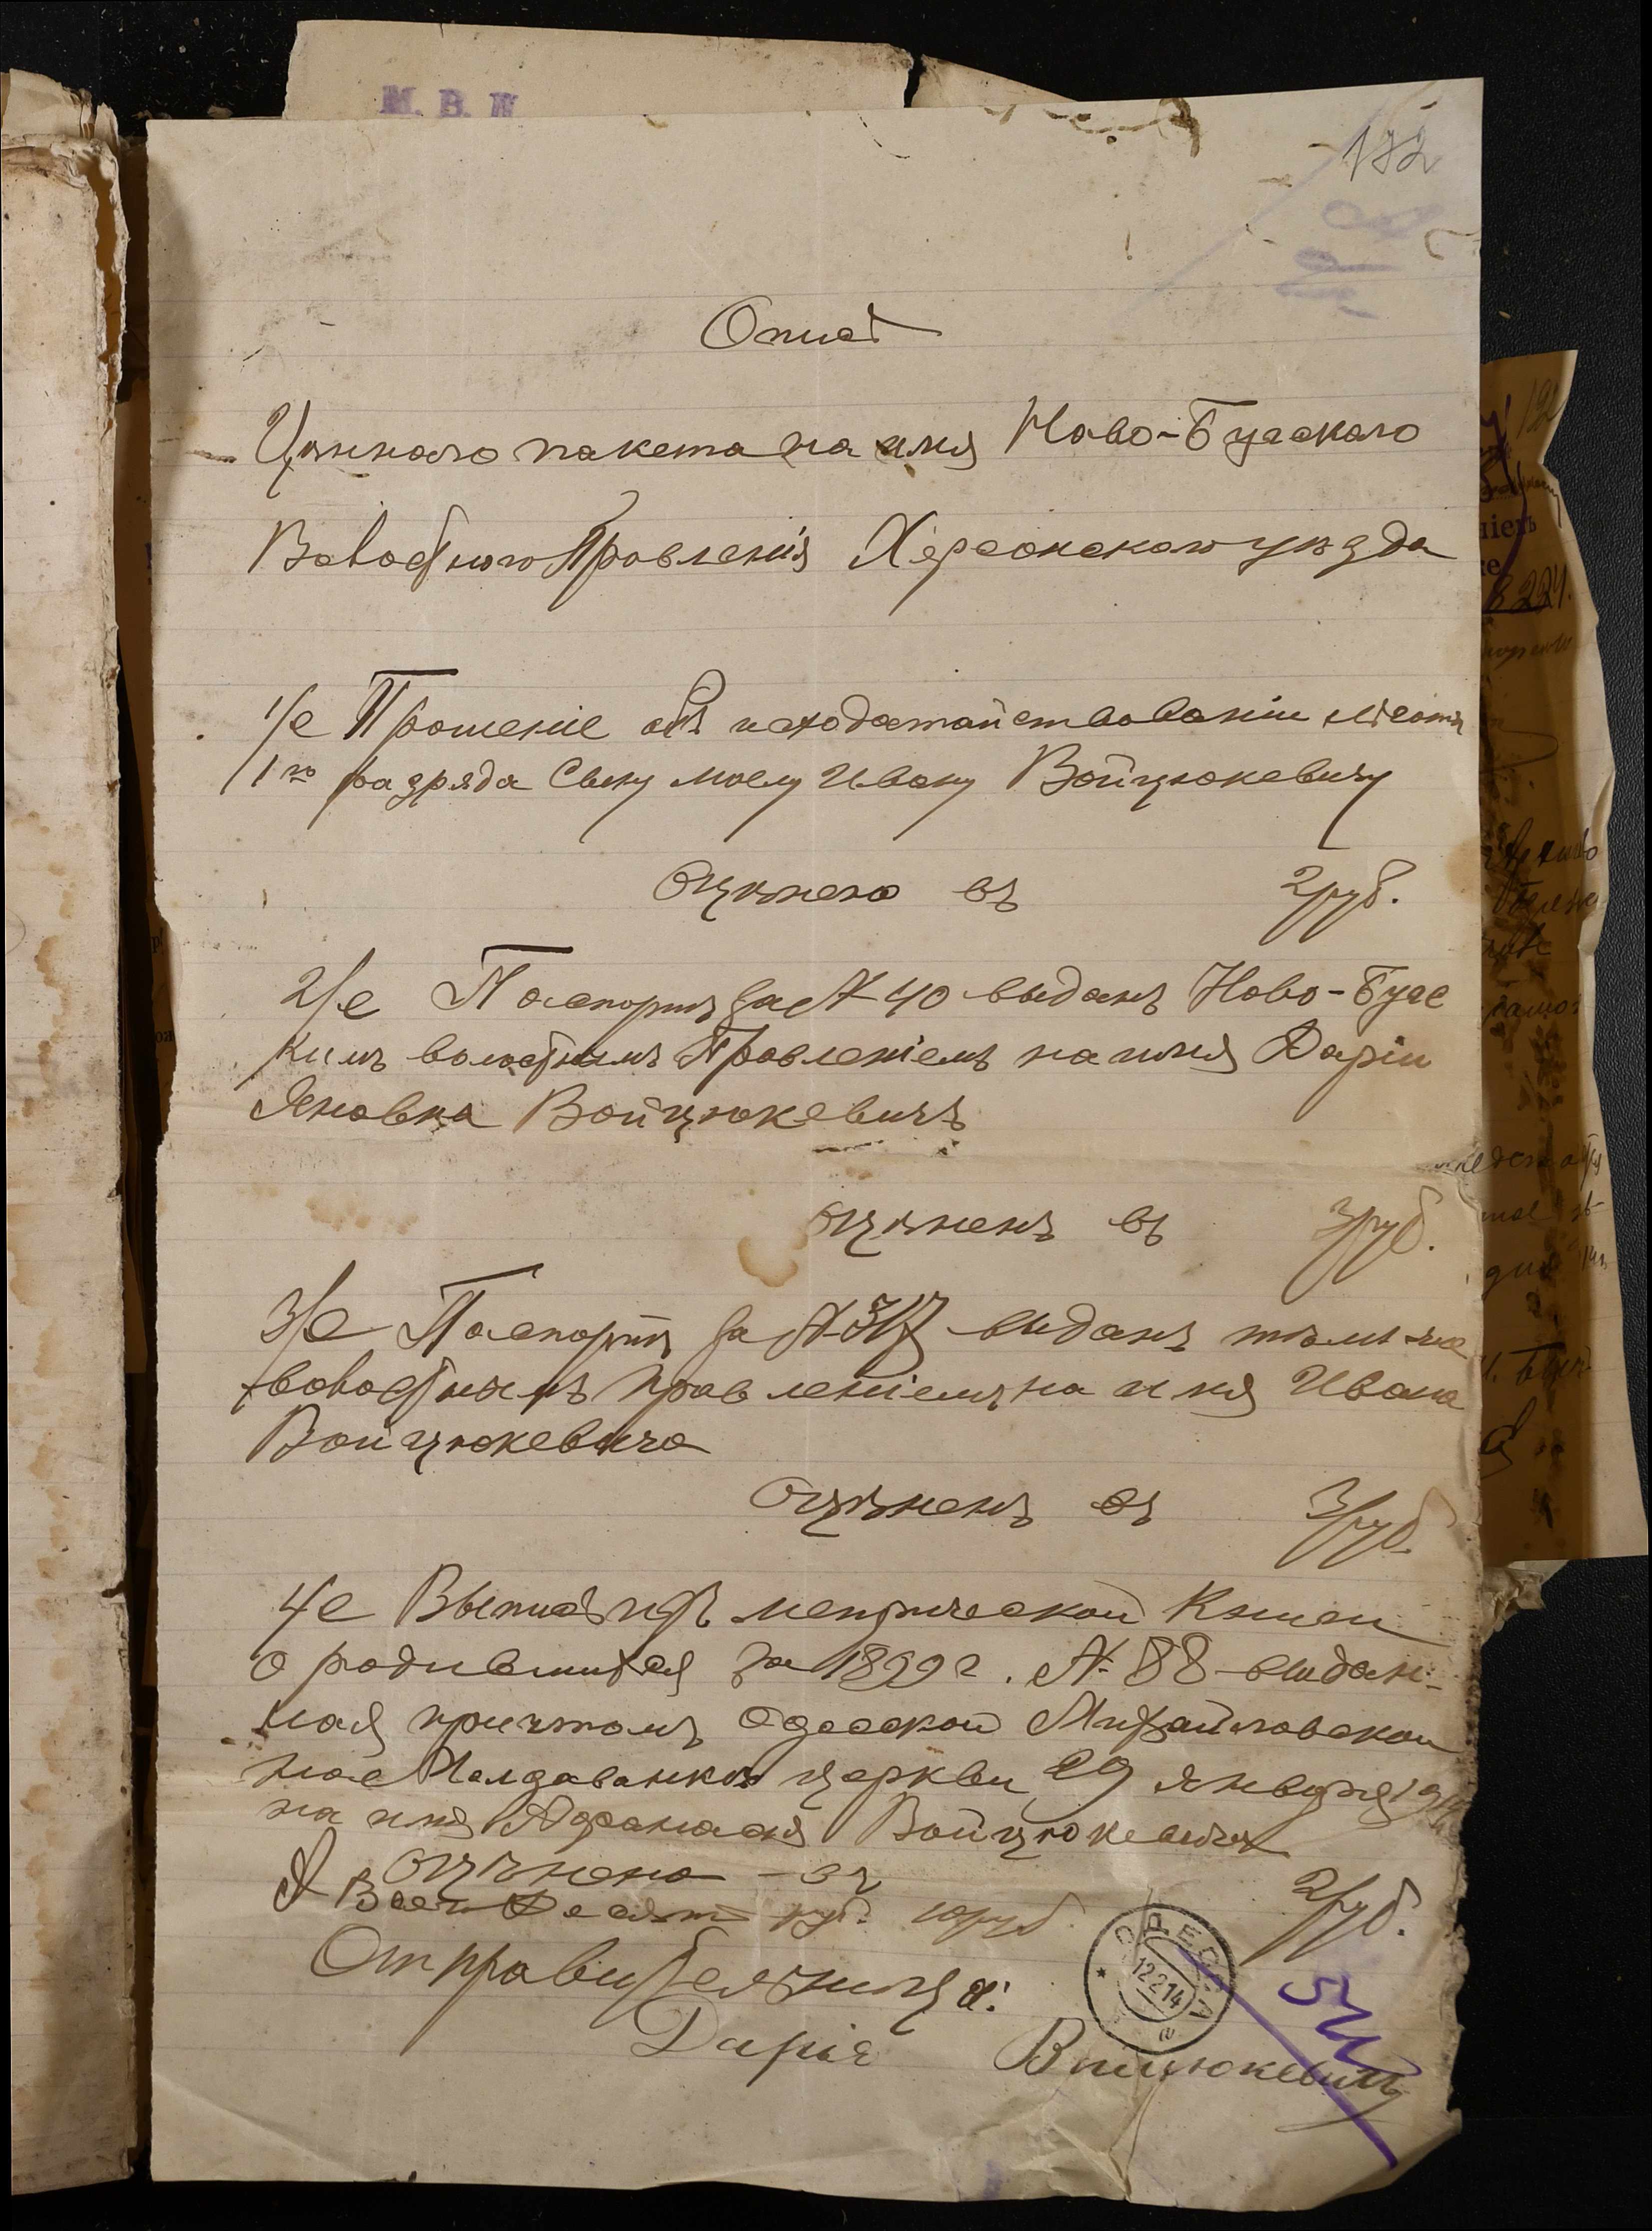 М. В. Д
172
Опись
Цѣннаго пакета на имя Ново-Бугскаго
Волостного Правленія Херсонскаго уѣзда
1/е Прошеніе объ исходатайствованіи льготы
1го разряда Сыну моему Ивану Войцюкевичу
Оцѣнено въ 2 руб.
2/е Паспортъ за № 40 выданъ Ново-Бугс
кимъ волостнымъ Правленіемъ на имя Даріи
Яковна Войцюкевичъ
оцѣненъ въ 3 руб.
3/е Паспортъ за № выданъ тѣмъ-же
волостнымъ правленіемъ на имя Ивана
Войцюкевича
Оцѣненъ въ 3 руб.
4/е Выпись изъ метрической Книги
о родившихся за 1899 г. № 88 выдан-
ная причтомъ Одесской Михайловской
на Молдаванкѣ церкви 29 января 1914
на имя Афанасія Войцюкевича
оцѣнено въ 2 руб.
А Всего Десять руб. 10 руб.
Отправительница:
ОДЕССА
12 2 14
54
Дарія Войцюкевичъ